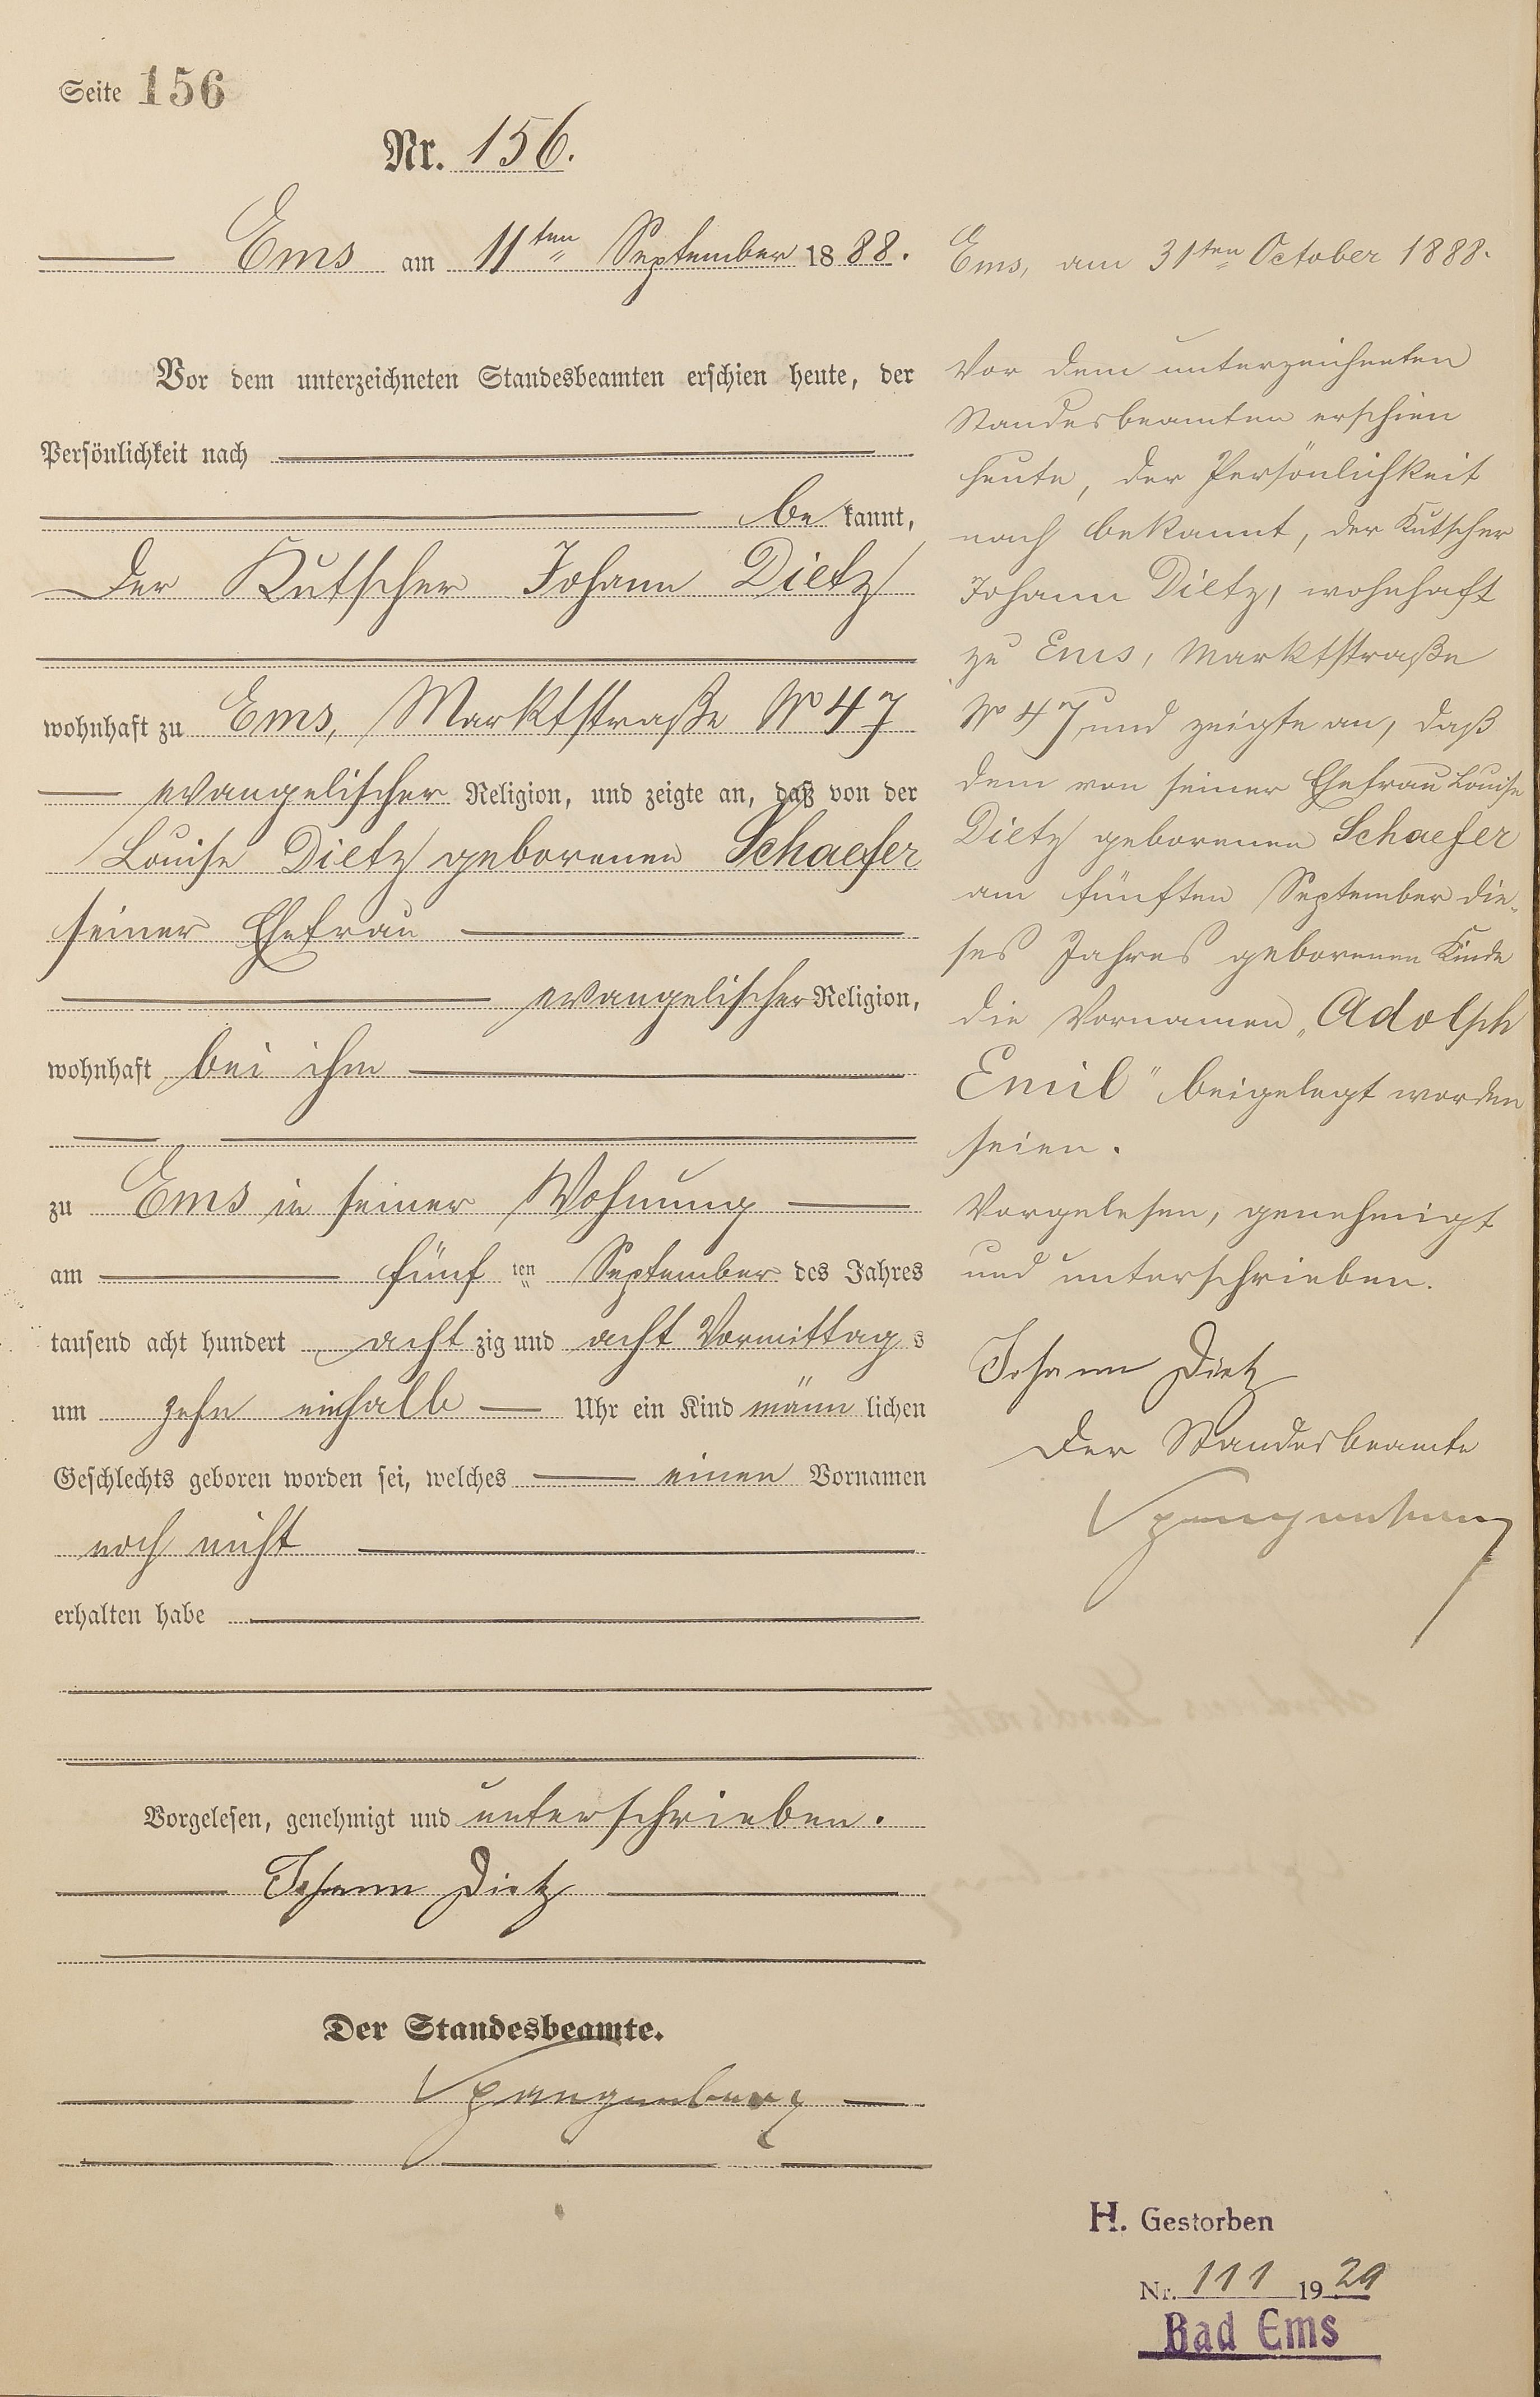 Seite 156
Nr. 156.
Ems am 11ten September 1888.
Vor dem unterzeichneten Standesbeamten erschien heute, der
Persönlichkeit nach
be kannt,
der Kutscher Johann Dietz
wohnhaft zu Ems, Marktstraße No 47
evangelischer Religion, und zeigte an, daß von der
Louise Dietz geborenen Schaefer
seiner Ehefrau
evangelischer Religion,
wohnhaft bei ihm
zu Ems in seiner Wohnung
am fünf ten September des Jahres
tausend acht hundert acht zig und acht Vormittag s
um zehn einhalb Uhr ein Kind männ lichen
Geschlechts geboren worden sei, welches einen Vornamen
noch nicht
erhalten habe
Vorgelesen, genehmigt und unterschrieben.
Johann Dietz
Der Standesbeamte.
Spangenberg
Ems, am 31ten October 1888.
Vor dem unterzeichneten
Standesbeamten erschien
heute, der Persönlichkeit
nach bekannt, der Kutscher
Johann Dietz, wohnhaft
zu Ems, Marktstraße
No 47, und zeigte an, daß
dem von seiner Ehefrau Louise
Dietz geborenen Schaefer
am fünften September die-
ses Jahres geborenen Kinde
die Vornamen „Adolph
Emil" beigelegt worden
seien.
Vorgelesen, genehmigt
und unterschrieben.
Johann Dietz
Der Standesbeamte
Spangenberg
H. Gestorben
Nr. 111 1929
Bad Ems